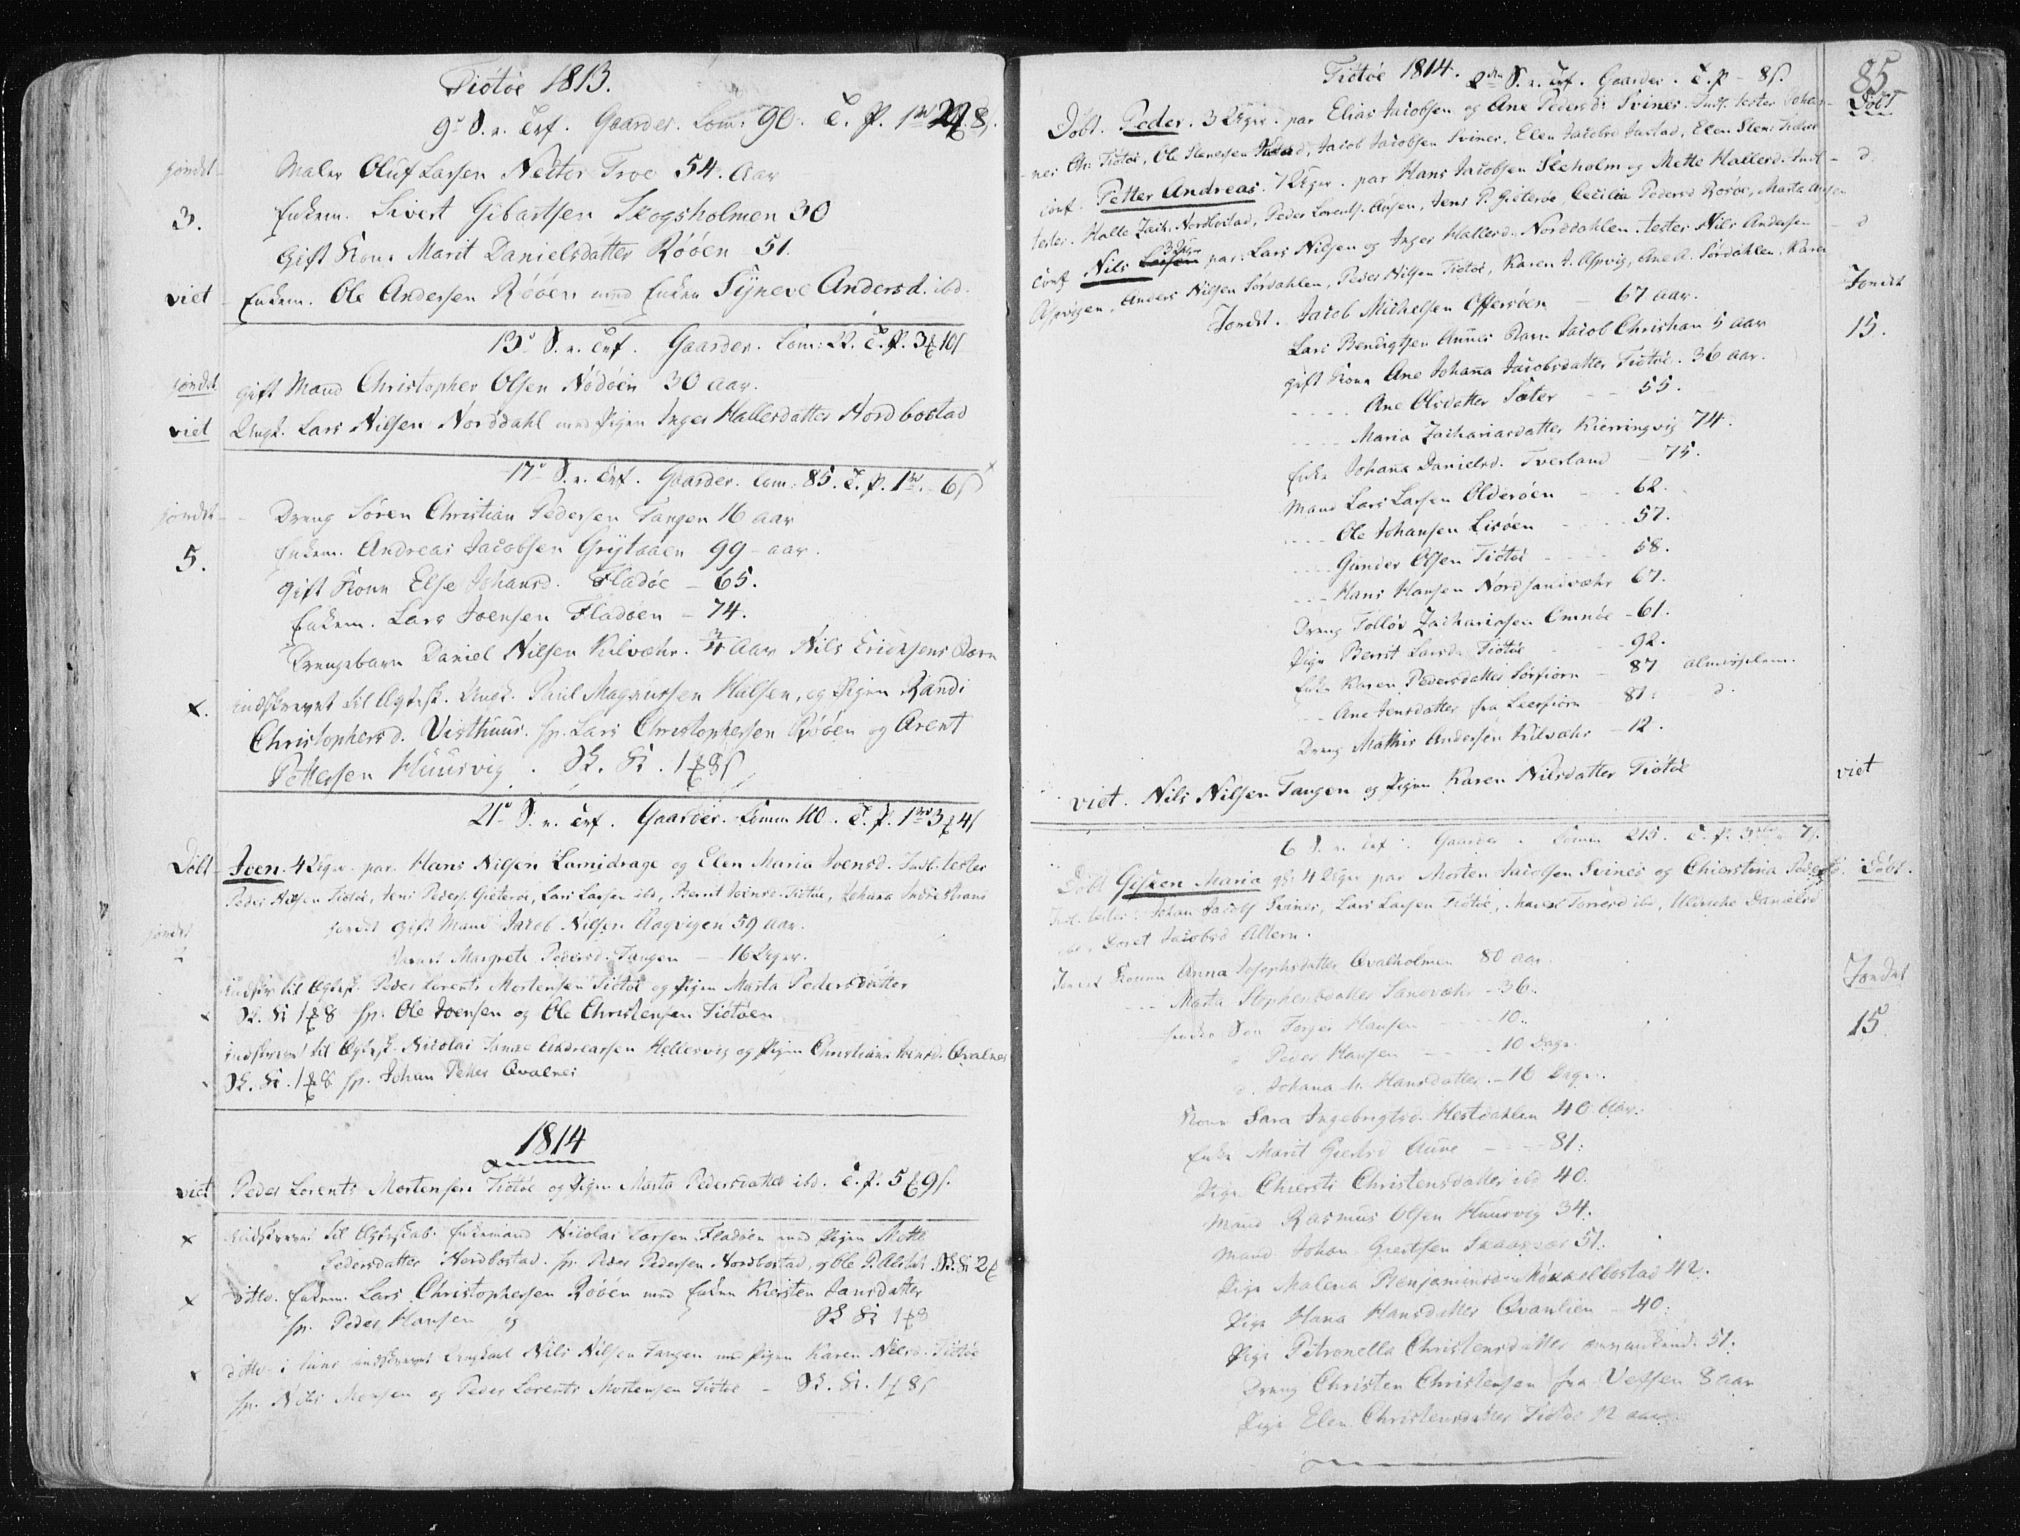 Tiötöe 1813.
9de S. e. Trf. Gaarder. Com. 90. T. P. 1 rd
jordet Maler Oluf Larsen Nector Troe 54. Aar
3. Enkem. Sivert Gibartsen Skogsholmen 30
Gift Kone Marit Danielsdatter Rööen - 51.
viet Enkem. Ole Andersen Rööen med Enken Synneve Andersd. ibd.
13de S. e. Trf. Gaarder. Com: 22. T. P. 3 10 s
jordet gift Mand Christopher Olsen Nödöen 30 aar.
viet Ungk. Lars Nilsen Norddahl med Pigen Inger Hallesdatter Nordbostad
17de S. e. Trf. Gaarder. Com: 85. T. P. 1 rd. - 6 s
jordet Dreng Sören Christian Pedersen Tangen 16 aar
5. Enkem. Andreas Jacobsen Grytaaen 99 - aar.
gift Kone Else Johansd. Fladöe - 65.
Enkem. Lars Joensen Fladöen - 74.
Drengebarn Daniel Nilsen Kilvæhr. 3/4 Aar Nils Ericksens Barn
x. indskrevet til Ægtesk. Ungk. Poul Magnussen Halsen, og Pigen Randi
Christophersd. Visthuus. sp. Lars Christophersen Rööen og Arent
Pettersen Huusvig. Sk. Ki. 1 8 s
21de S. e. Trf. Gaarder. Comm 110. T. P. 1 rd 3 4 s
Döbt Joen. 4 Uger. par. Hans Nilsen Lamidrage og Elen Maria Joensd. Test: tester
Peder Nilsen Tiötöe, Jens Peders. Gieteröe, Lars Larsen ibd, Berrit Joensd. Tiötöe, Johana
jordet jordet gift Mand Jacob Nilsen Aagvigen 59 aar.
Margrete Pedersd. Tangen - 16 Uger.
indskr. til Ægtesk. Peder Lorents Mortensen Tiötöe og Pigen Marta Pedersdatter
x Sk. Ki 1 8 sp. Ole Joensen og Ole Christensen Tiötöen
indskrevet til Ægtesk. Nicolai Andreassen Hellesvig og Pigen Christiana Qvalnes
Sk. Ki. 1 8 sp. Johan Peter Qvalnes
1814
viet Peder Lorents Mortensen Tiötöe og Pigen Marta Pedersdatter ibd. T. P. 5 9 s.
x indskrevet til Ægteskab. Enkemand Nicolai Larsen Fladöen med Pigen Mette
Pedersdatter Nordbostad. sp. Peder Pedersen Nordbostad, og Ole P. Sk. Ki 2
x ditto. Enkem. Lars Christophersen Rööen med Enken Kiersten Jansdatter
sp. Peder Hansen og Sk Ki 1 8
x ditto - indskrevet Ungkarl Nils Nilsen Tangen med Pigen Karen Nilsd. Tiötöe
sp. Nils Monsen og Peder Lorents Mortensen Tiötöe - Sk. Ki. 1 8 s
Tiötöe 1814. 2den S. e. Trf. Gaarder. T. P - 8 s. 85
Döbt. Peder. 3 Uger. par Elias Jacobsen og Ane Pedersd: Svines. tester Johan Döbt
Tiötöe, Ole Jacob Jacobsen Svines, Elen Jacobsd
conf. Petter Andreas. 7 Uger. par Hans Jacobsen Sleholm og Mette Hallesd. - d.
tester. Halle Zach. Nordbostad, Peder Lorents. Jens P. Gieteröe, Cecilia Pedersd Rosöe, Marta
conf Nils 3 Uger par: Lars Nilsen og Inger Hallesd. Norddahlen. tester Nils Andersen - d
Aspvigen, Anders Nilsen Sördahlen, Peder Nilsen Tiötöe, Karen J. Aspvig, Ane A. Sördahlen, Karen
Jordt. Jacob Michelsen Offersöen - 67 aar. Jordet
Lars Bendigtsen Aunes Barn Jacob Christian 5 aar 15.
gift Kone Ane Johana Jacobsdatter Tiötöe. 36 aar.
Ane Olsdatter Sæter - 55.
Maria Zachariasdatter Kierringvig 74.
Enke Johana Danielsd. Tverland - 75.
Mand Lars Larsen Olderöen - 62.
Ole Johansen Lisöen - 57.
Gunder Olsen Tiötöe - 58.
Hans Hansen Nordsandvæhr 67.
Dreng Tollöv Zachariasen Omnöe - 61.
Pige Berrit Larsd. Tiötöe - 92.
Enke Karen Pedersdatter Sörfiorn - 87 almisselem.
Ane Jensdatter fra Leerfiorn 81. d.
Dreng Mathis Andersen Kilvæhr - 12.
viet. Nils Nilsen Tangen og Pigen Karen Nilsdatter Tiötöe viet
6 S. e. Trf. Gaarder. Comm 215. T. P. 3 7 s.
Döbt Gisken Maria 4 Uger par Morten Jacobsen Svines og Chierstina Döbt.
Test. tester: Johan Jacobs Svines, Lars Larsen Tiötöe, Ulriche Danielsd
Doret Jacobsd Altern.
Jordet Konen Anna Josephsdatter Qvalholmen 80 aar. Jordet
Marta Stephensdatter Sandvæhr - 36. 15.
Sön Torger Hansen - 10.
d Peder Hansen - 10 Dage.
d. Johana M. Hansdatter. - 16 Uger.
Kone Sara Ingebrigtsd. Hestdahlen 40 Aar.
Enke Marit Giertsd Aune - 81.
Pige Chiersti Christensdatter ibd 40.
Mand Rasmus Olsen Huusvig 34.
Mand Johan Giertsen Skaagvær 51.
Pige Malena Benjaminsdatter 42.
Pige Hana Hansdatter Qvanlien - 40.
Pige Petronella Christensdatter 51.
Dreng Christen Christensen fra Vefsen 8 aar
Pige Elen Christensdatter Tiötöe 12 aar